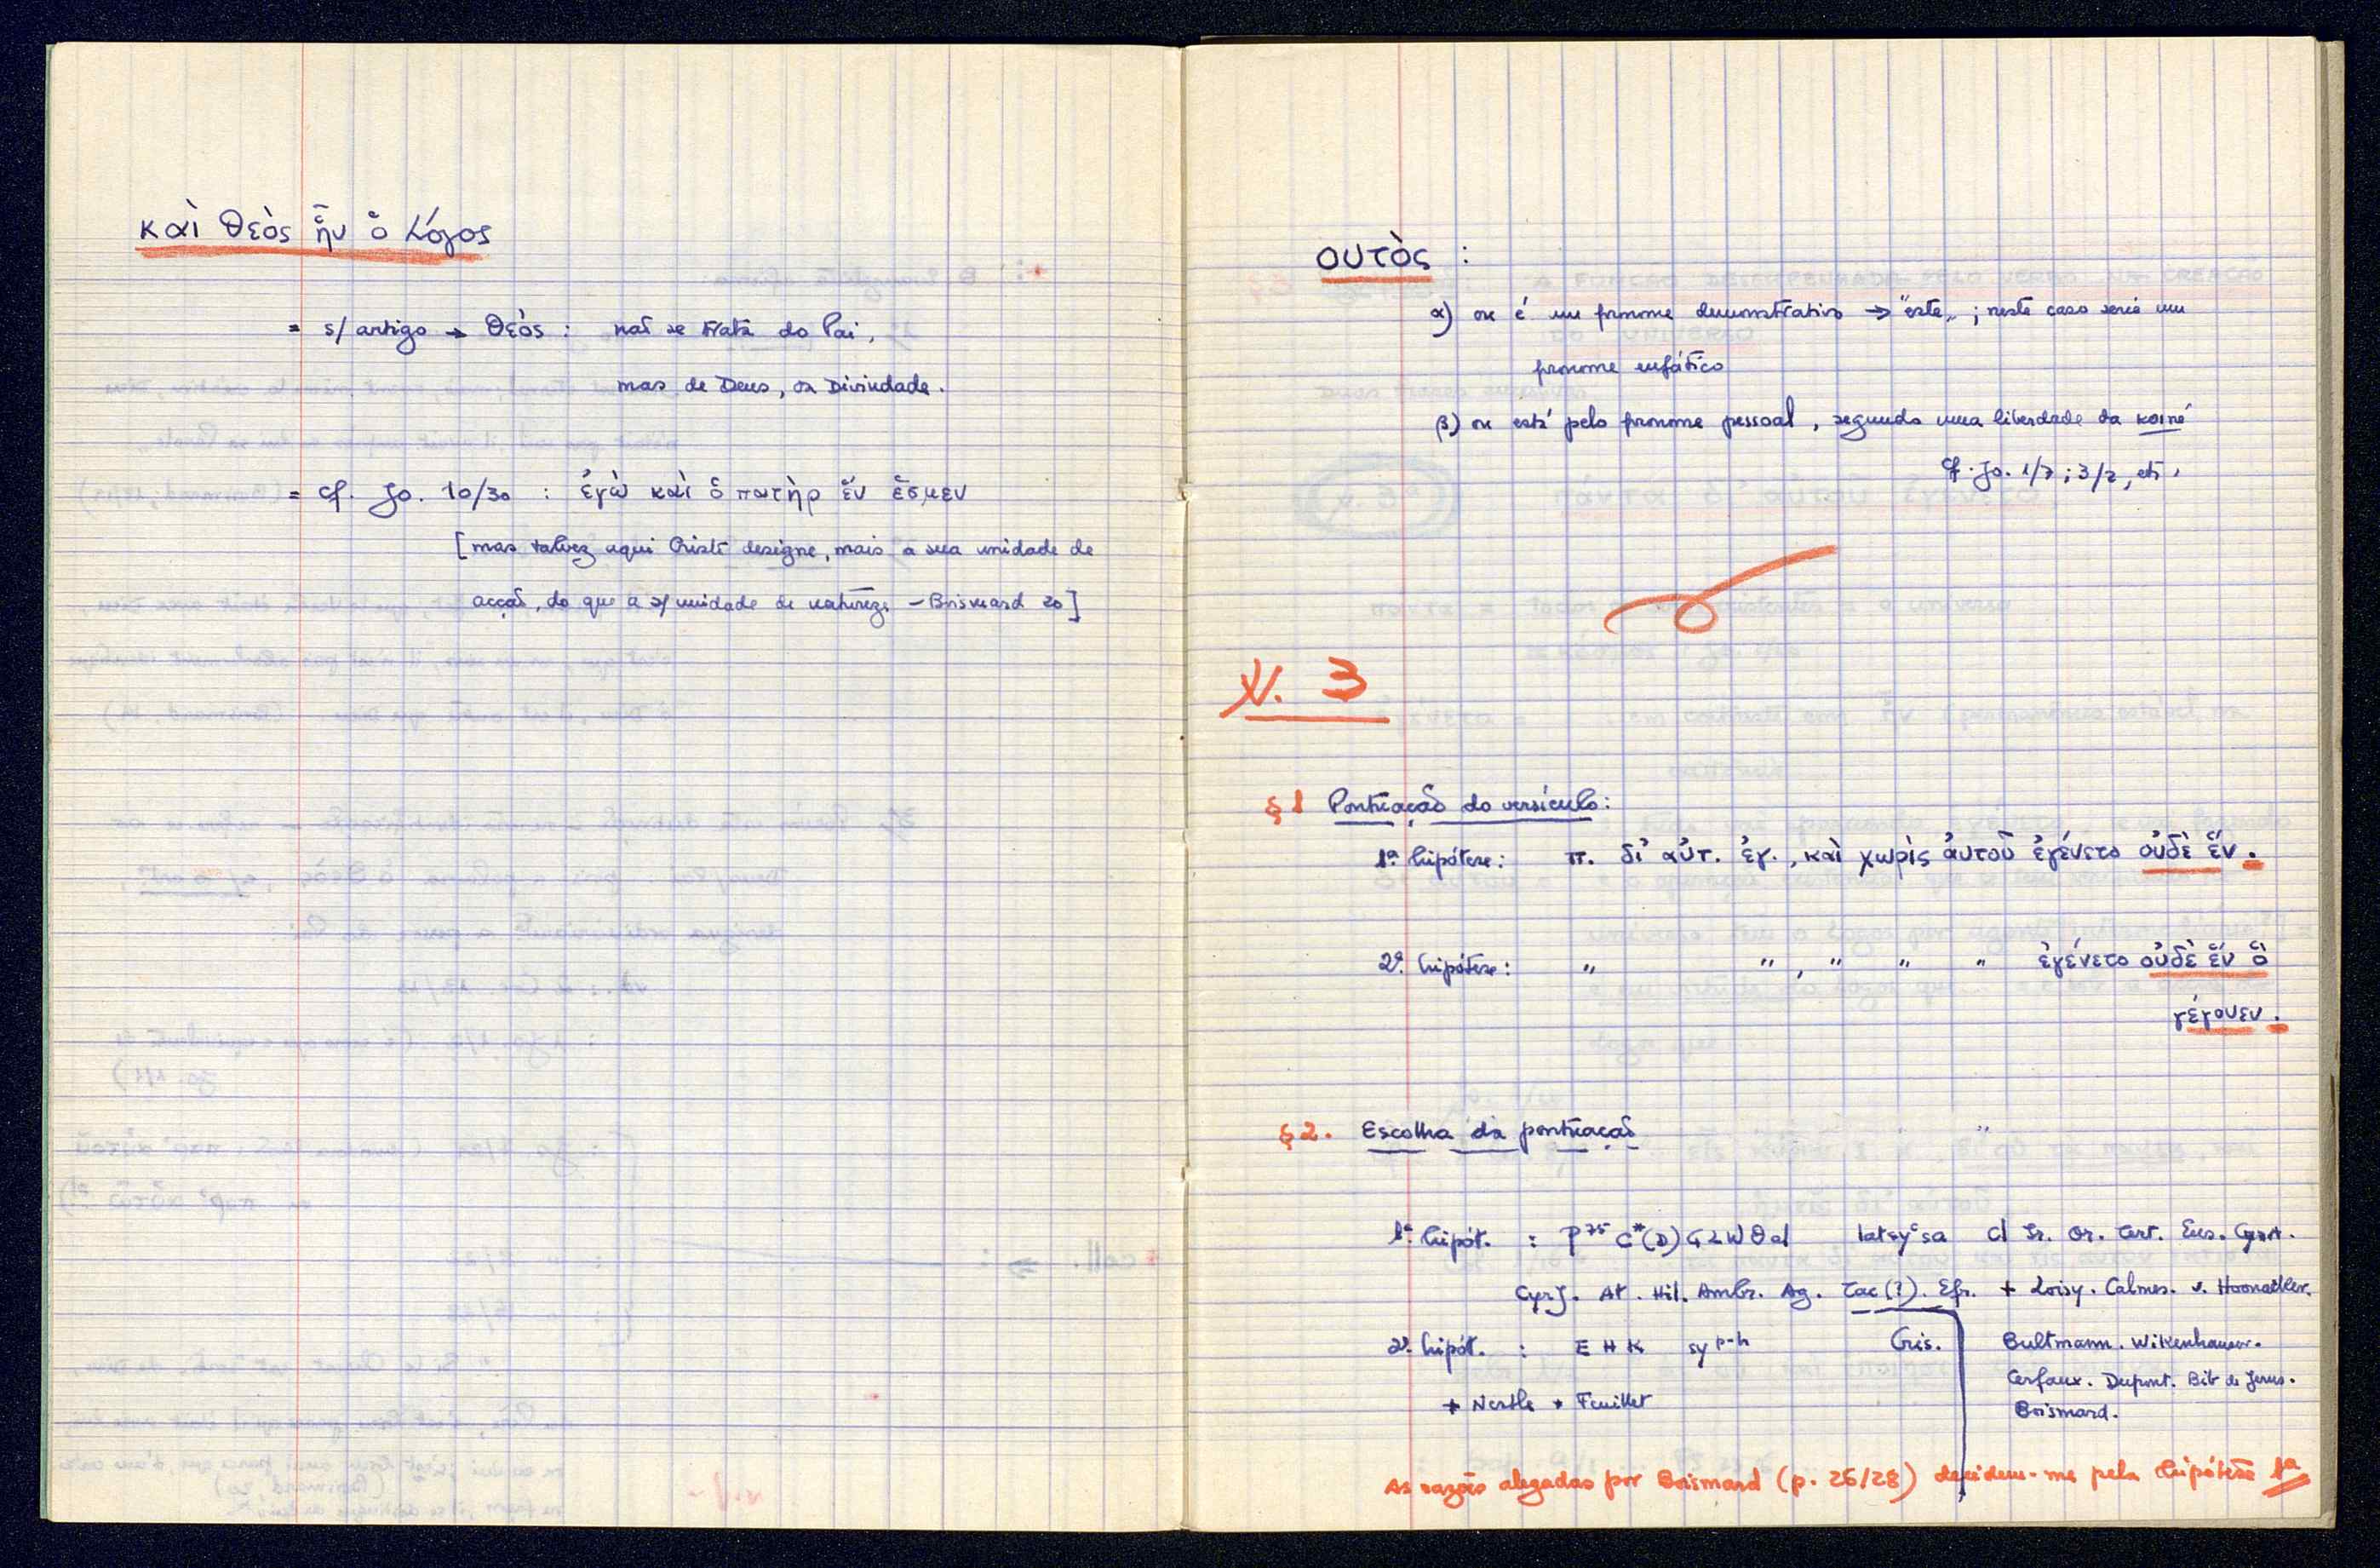 καὶ θεὸς ἦν ὁ λόγος
= s/ artigo → θεὸς : não se trata do Pai,
mas de Deus, da Divindade.
= cf. Jo. 10/30 : ἐγὼ καὶ ὁ πατὴρ ἕν ἔσμεν
[mas talvez aqui Cristo designe, mais a sua unidade de
acção, do que a s/ unidade de natureza – Boismard 20]
ουτὸς :
α) ou é um pronome demonstrativo → "este"; neste caso seria um
pronome enfático
β) ou está pelo pronome pessoal, segundo uma liberdade da koiné
cf. Jo. 1/7; 3/2, etc.
V. 3
§ 1 Pontuação do versículo:
1ª hipótese: π. δι᾽ αὐτ. ἐγ., καὶ χωρὶς ἀυτοῦ ἐγένετο οὐδὲ ἕν.
2ª hipótese: " " , " " " ἐγένετο οὐδὲ ἕν ὃ
γέγονεν.
§ 2. Escolha da pontuação
1ª hipót. : P⁷⁵ C*(D) G L W Θ al lat syᶜ sa Cl Ir. Or. Tert. Eus. Cyr A.
Cyr J. At. Hil. Ambr. Ag. Tac (?). Efr. + Loisy. Calmes. v. Hoonacker.
2ª hipót. : E H K sy ᵖ⁻ʰ Cris.
+ Nestle + Feuillet
Bultmann. Wikenhauser.
Cerfaux. Dupont. Bib de Jerus.
Boismard.
As razões alegadas por Boismard (p. 25/28) decidem-me pela hipótese 1ª